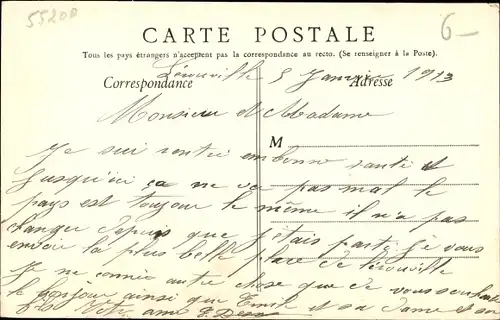 55200
6-
CARTE POSTALE
Tous les pays étrangers n'acceptent pas la correspondance au recto. (Se renseigner à la Poste).
Lérouville 5 Janvier 1913
Correspondance Adresse
Monsieur et Madame
M
Je sui rentré en bonne santé et
Jusqu'ici ça ne va pas mal le
pays est toujour le même il n'a pas
changer depuis que j'étais parti je vous
envoie la plus belle place de Lérouville
Je ne connais autre chose que de vous souhaiter
le bonjour ainsi que Emile et sa dame et son
fils Votre ami E.